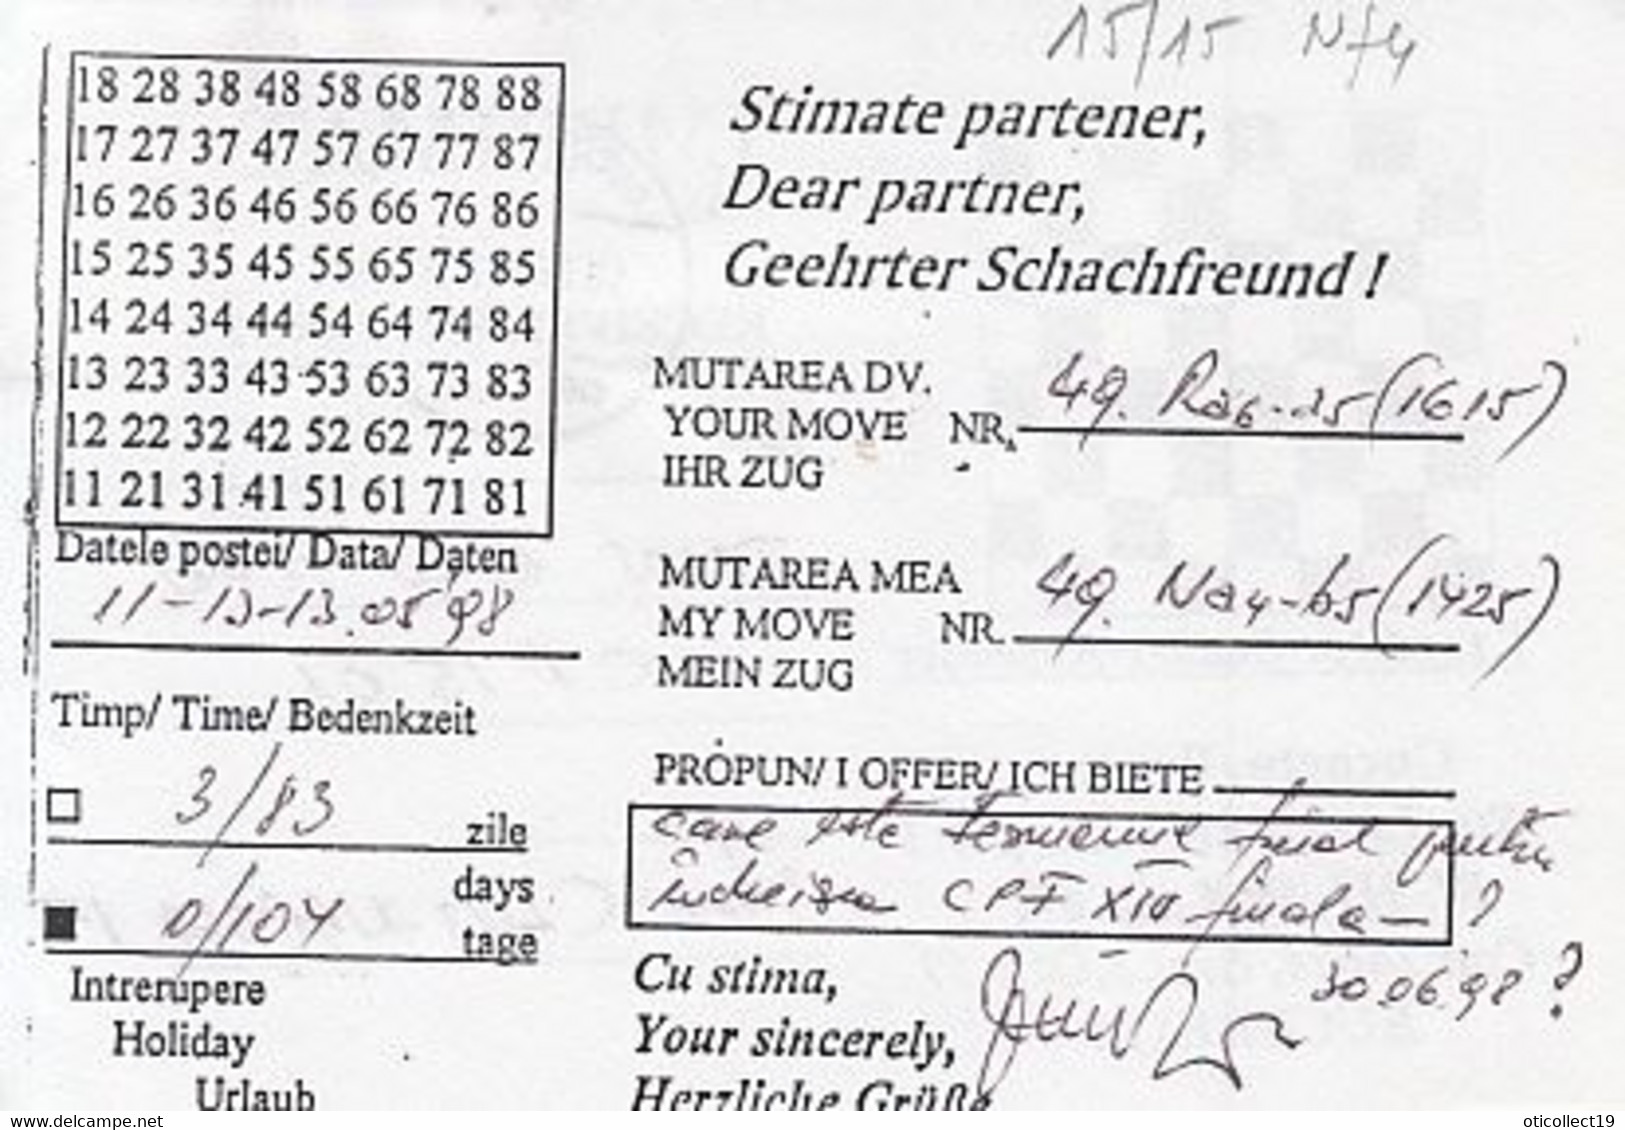 15/15 Nf4
18 28 38 48 58 68 78 88
17 27 37 47 57 67 77 87
16 26 36 46 56 66 76 86
15 25 35 45 55 65 75 85
14 24 34 44 54 64 74 84
13 23 33 43 53 63 73 83
12 22 32 42 52 62 72 82
11 21 31 41 51 61 71 81
Datele postei/ Data/ Daten
11-13-13.05 98
Timp/ Time/ Bedenkzeit
3/83
zile
days
0/104
tage
Intrerupere
Holiday
Urlaub
Stimate partener,
Dear partner,
Geehrter Schachfreund !
MUTAREA DV.
YOUR MOVE NR. 49. Ra6-a5 (1615)
IHR ZUG
MUTAREA MEA
MY MOVE NR. 49. Na4-b5 (1425)
MEIN ZUG
PROPUN/ I OFFER/ ICH BIETE
care este termenul final pentru
încheierea CPF XIV finala - ?
30.06.98 ?
Cu stima,
Your sincerely,
Herzliche Grüße
oticollect19